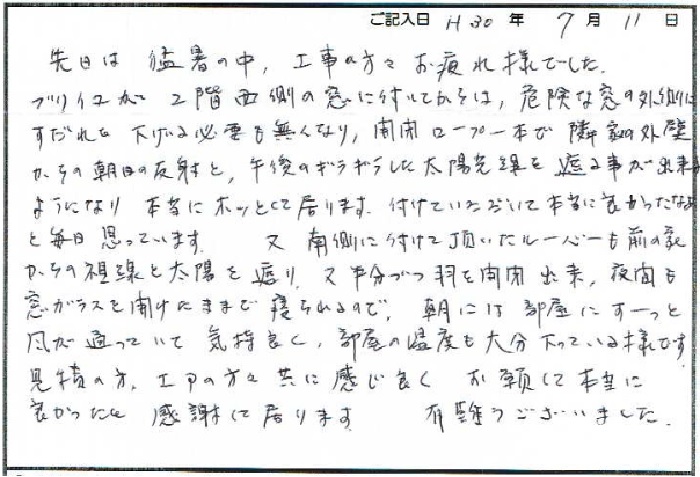 ご記入日 H30年 7月 11日
先日は 猛暑の中, 工事の方々 お疲れ様でした.
ブリイユが 2階西側の窓に付いてからは, 危険な窓の外側に
すだれを 下げる必要も無くなり, 開閉 ロープ一本で 隣家の外壁
からの朝日の反射と, 午後のギラギラした太陽光線を 遮る事が出来る
ようになり 本当にホッとして居ります. 付けていただいて本当に良かったなぁ
と毎日思っています. 又 南側に付けて頂いたルーバーも前の家
からの視線と太陽を遮り, 又半分づつ羽を開閉出来, 夜間も
窓ガラスを開けたままで 寝られるので, 朝には 部屋にすーっと
風が通っていて 気持良く, 部屋の温度も大分下っている様です.
見積の方, 工事の方々 共に感じ良く お願いして本当に
良かったと 感謝して居ります 有難うございました.